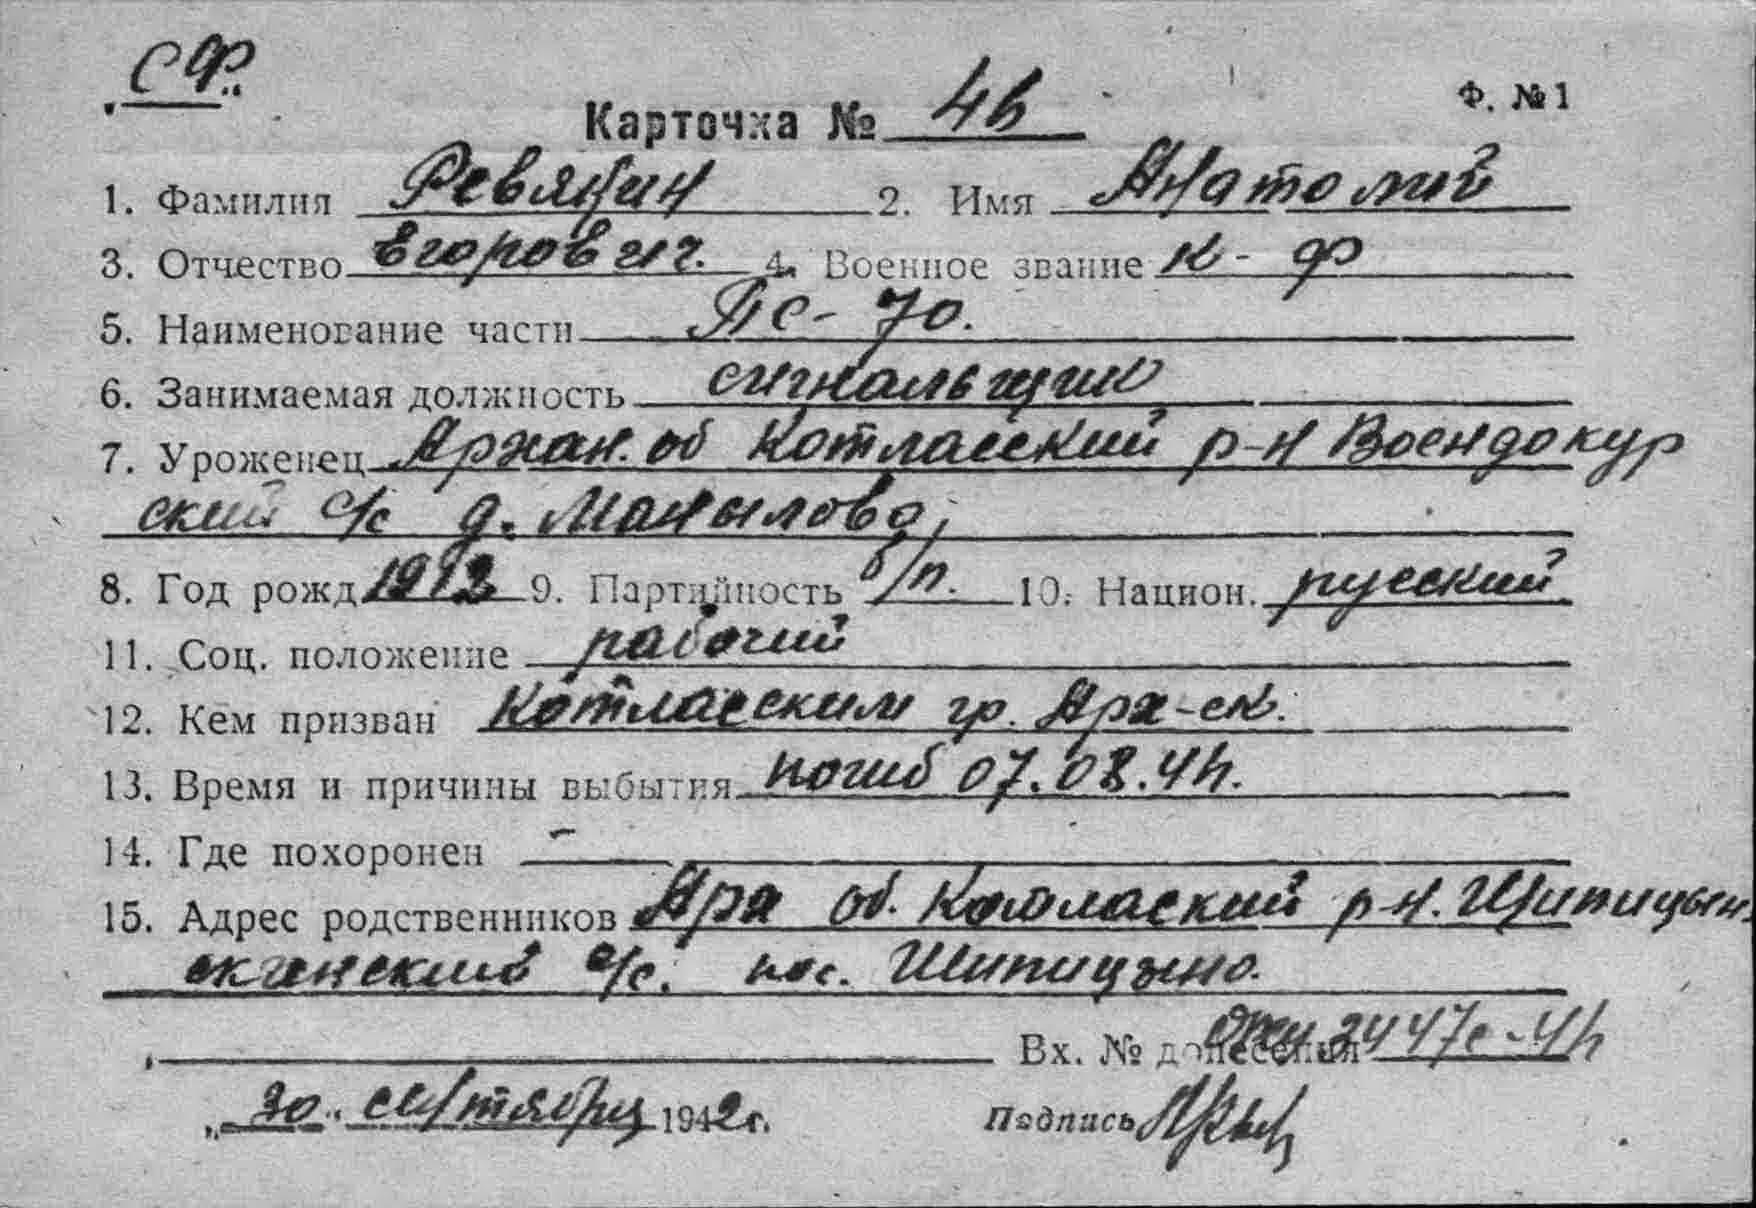 СФ.
Ф. №1
Карточка № 46
1. Фамилия Ревякин 2. Имя Анатолий
3. Отчество Егорович. 4. Военное звание к-ф
5. Наименование части ПС-70.
6. Занимаемая должность сигнальщик
7. Уроженец Архан. об Котласский р-н Воендокур
ский с/с д. Манылово,
8. Год рожд 1912 9. Партийность б/п. 10. Национ. русский
11. Соц. положение рабочий
12. Кем призван Котласским гр. Арх-ск.
13. Время и причины выбытия погиб 07.08.42.
14. Где похоронен —
15. Адрес родственников Арх об. Котласский р-н. Шипицын
ский с/с. пос. Шипицыно.
Вх. № донесения 2447с-42
„30„ сентября 1942г.
Подпись